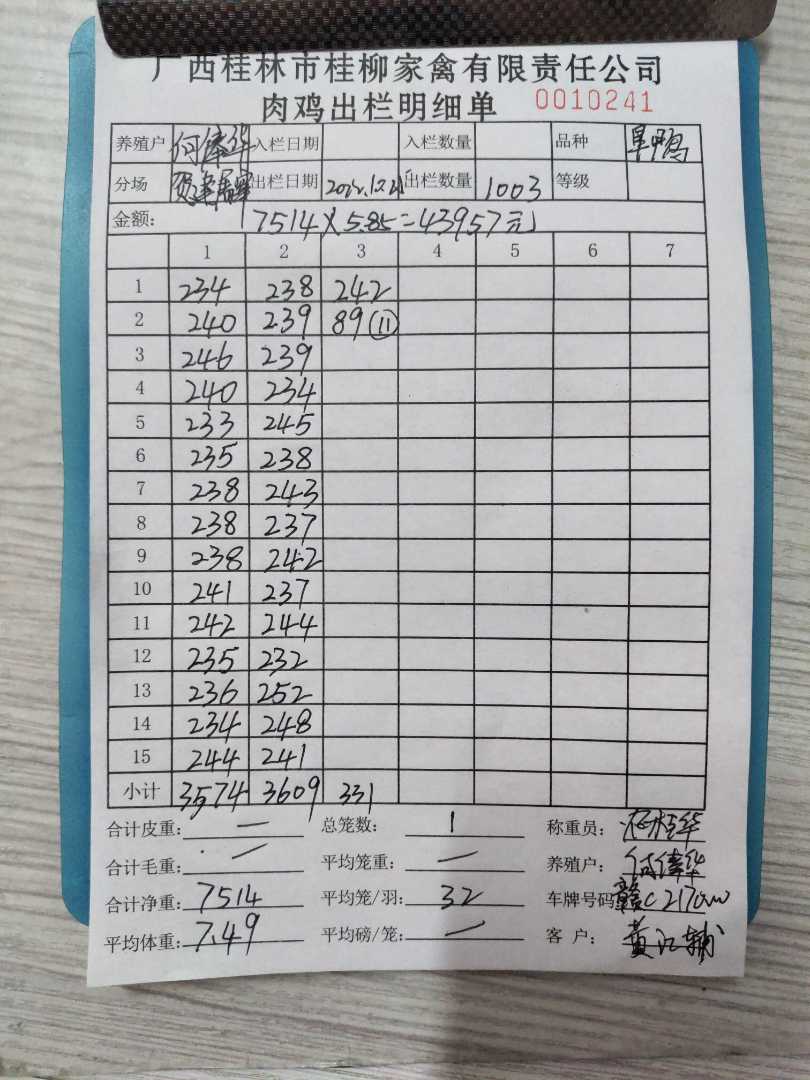 广西桂林市桂柳家禽有限责任公司
肉鸡出栏明细单 0010241
养殖户 何倖华 入栏日期 入栏数量 品种 旱鸭
分场 出栏日期 出栏数量 1003 等级
金额: 7514×5.85=43957元
1 2 3 4 5 6 7
1 234 238 242
2 240 239 89(11)
3 246 239
4 240 234
5 233 245
6 235 238
7 238 243
8 238 237
9 238 242
10 241 237
11 242 244
12 235 232
13 236 252
14 234 248
15 244 241
小计 3574 3609 331
合计皮重: — 总笼数: 1 称重员:
合计毛重: — 平均笼重: — 养殖户: 何倖华
合计净重: 7514 平均笼/羽: 32 车牌号码: 赣C
平均体重: 7.49 平均磅/笼: — 客户: 黄